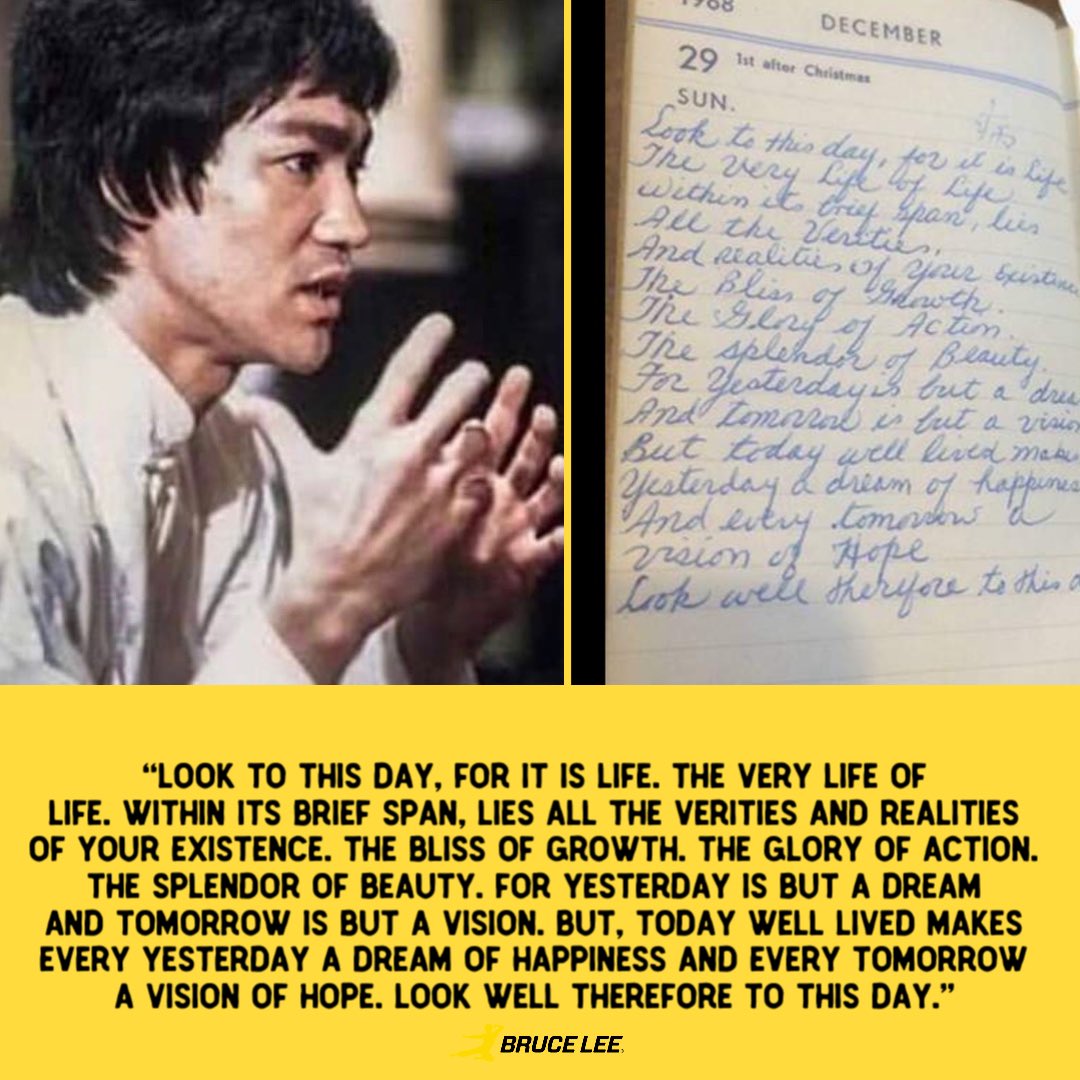 1968
DECEMBER
29 1st after Christmas
SUN.
Look to this day, for it is life
The Very Life of Life
Within its brief span, lies
All the Verities,
And realities of your existence
The Bliss of Growth.
The Glory of Action.
The splendor of Beauty.
For Yesterday is but a
And tomorrow is but a vision
But today well lived makes
Yesterday a dream of happiness
And every tomorrow a
vision of Hope
Look well therefore to this
“LOOK TO THIS DAY, FOR IT IS LIFE. THE VERY LIFE OF
LIFE. WITHIN ITS BRIEF SPAN, LIES ALL THE VERITIES AND REALITIES
OF YOUR EXISTENCE. THE BLISS OF GROWTH. THE GLORY OF ACTION.
THE SPLENDOR OF BEAUTY. FOR YESTERDAY IS BUT A DREAM
AND TOMORROW IS BUT A VISION. BUT, TODAY WELL LIVED MAKES
EVERY YESTERDAY A DREAM OF HAPPINESS AND EVERY TOMORROW
A VISION OF HOPE. LOOK WELL THEREFORE TO THIS DAY.”
BRUCE LEE